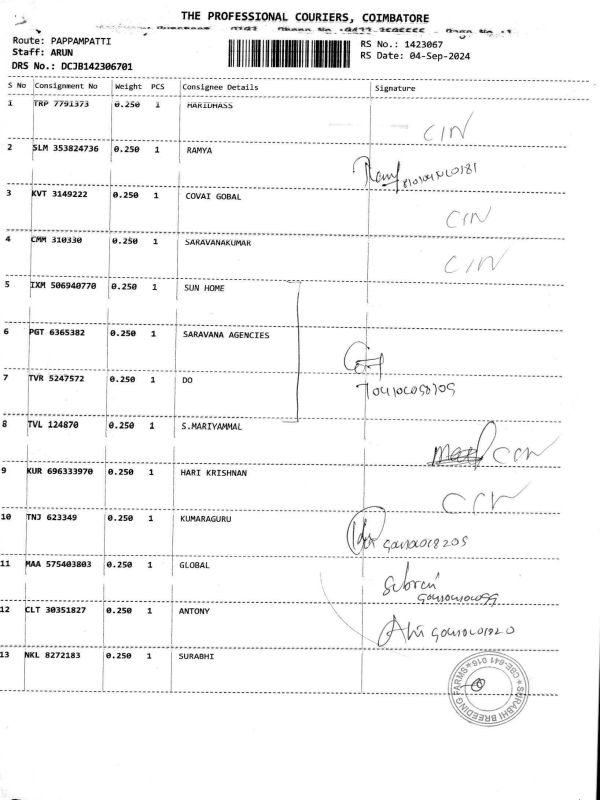 THE PROFESSIONAL COURIERS, COIMBATORE
Route: PAPPAMPATTI
Staff: ARUN
DRS No.: DCJB142306701
RS No.: 1423067
RS Date: 04-Sep-2024
S No Consignment No Weight PCS Consignee Details Signature
1 TRP 7791373 0.250 1 HARIDHASS CIN
2 SLM 353824736 0.250 1 RAMYA
3 KVT 3149222 0.250 1 COVAI GOBAL CIN
4 CMM 310330 0.250 1 SARAVANAKUMAR CIN
5 IXM 506940770 0.250 1 SUN HOME
6 PGT 6365382 0.250 1 SARAVANA AGENCIES
7 TVR 5247572 0.250 1 DO
8 TVL 124870 0.250 1 S.MARIYAMMAL
9 KUR 696333970 0.250 1 HARI KRISHNAN
10 TNJ 623349 0.250 1 KUMARAGURU
11 MAA 575403803 0.250 1 GLOBAL
12 CLT 30351827 0.250 1 ANTONY
13 NKL 8272183 0.250 1 SURABHI
SURABHI BREEDING FARMS CBE-641 016